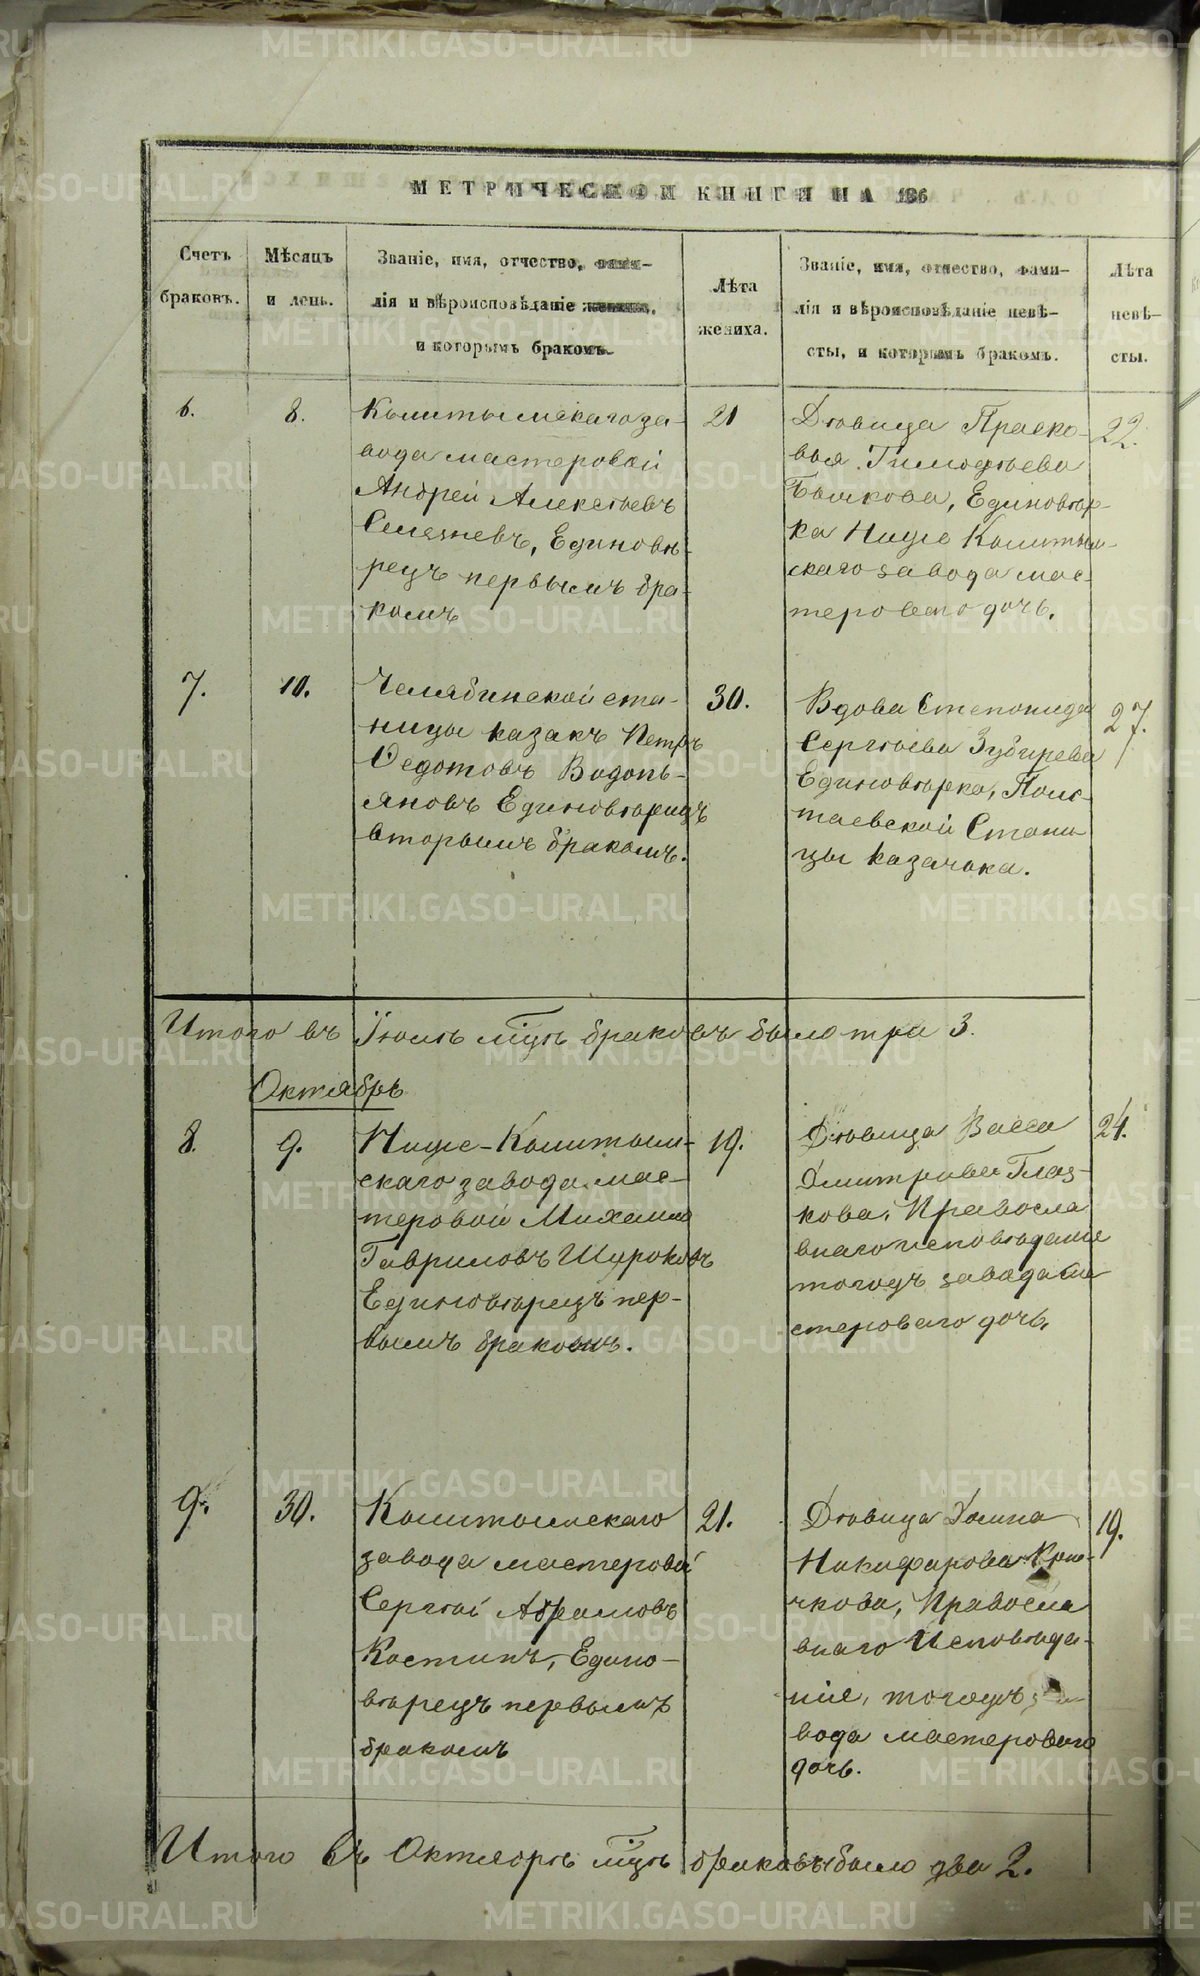 МЕТРИЧЕСКОЙ КНИГИ НА 186
Счетъ браковъ.
Мѣсяцъ и день.
Званіе, имя, отчество, фами-
лія и вѣроисповѣданіе жениха,
и которымъ бракомъ.
Лѣта жениха.
Званіе, имя, отчество, фами-
лія и вѣроисповѣданіе невѣ-
сты, и которымъ бракомъ.
Лѣта невѣ-
сты.
6.
8.
Кыштымскаго за-
вода мастеровой
Андрей Алексѣевъ
Селезневъ, Единовѣ-
рецъ первымъ бра-
комъ
21
Дѣвица Праско-
вья Тимофѣева
Единовѣр-
ка Ниже Кыштым-
скаго завода мас-
тероваго дочь.
22.
7.
10.
Челябинской ста-
ницы казакъ Петръ
Ѳедотовъ Водопь-
яновъ Единовѣрецъ
вторымъ бракомъ.
30.
Вдова Степонида
Сергѣева Зубирева
Единовѣрка,
Стани-
цы казачка.
27.
Итого въ Іюлѣ мцѣ браковъ было три 3.
Октябрь
8.
9.
Ниже-Кыштым-
скаго завода мас-
теровой Михаилъ
Гавриловъ Широковъ
Единовѣрецъ пер-
вымъ бракомъ.
19.
Дѣвица Васса
Дмитріева Глаз-
кова, Правосла
внаго исповѣданіе
тогожъ завода ма
стероваго дочь.
24.
9.
30.
Кыштымскаго
завода мастеровой
Сергѣй Абрамовъ
Костинъ, Едино-
вѣрецъ первымъ
бракомъ
21.
Дѣвица
Никифорова Крю-
чкова, Правосла
внаго Исповѣда-
ніе, тогожъ за-
вода мастероваго
дочь.
19.
Итого въ Октябрѣ мцѣ браковъ было два 2.
METRIKI.GASO-URAL.RU